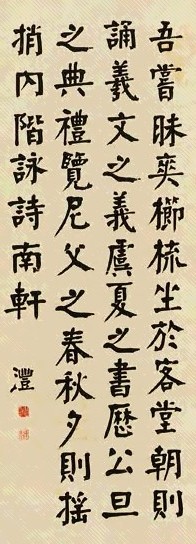 吾嘗昧爽櫛梳坐於客堂朝則
誦羲文之義虞夏之書歷公旦
之典禮覽尼父之春秋夕則搖
捎內階詠詩南軒
灃